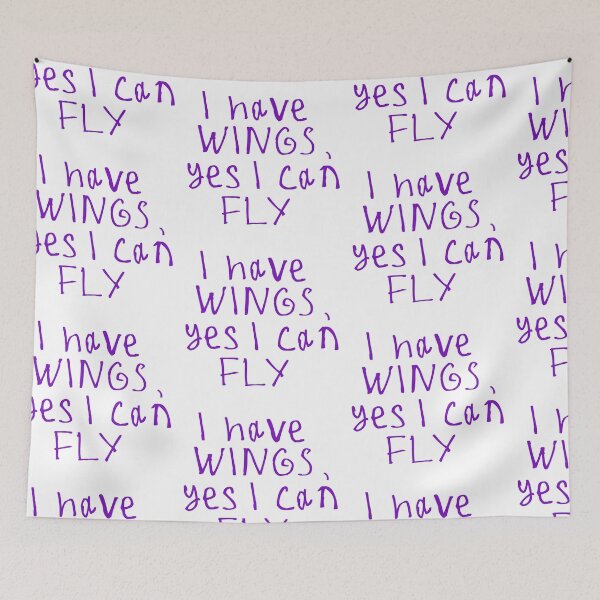 yes I can
FLY
I have
WINGS,
yes I can
FLY
I have
WINGS,
yes I can
FLY
I have
I have
WINGS,
yes I can
FLY
I have
WINGS,
yes I can
FLY
I have
WINGS,
yes I can
FLY
yes I can
FLY
I have
WINGS,
yes I can
FLY
I have
WINGS,
yes I can
FLY
I have
I h
WI
yes
F
I h
WI
yes
F
I h
WI
yes